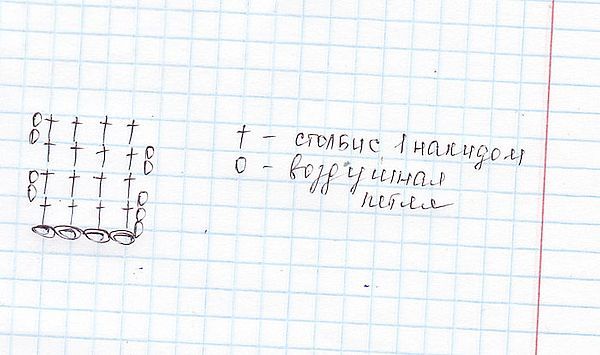 † - столбис 1 накидом
0 - воздушная
петля